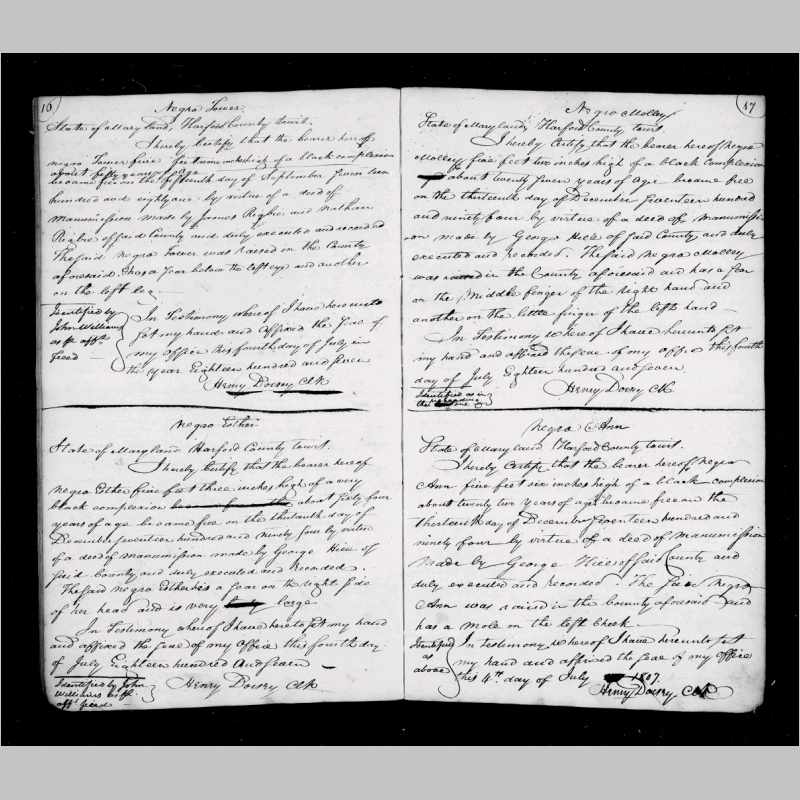 16
Negro Tower
State of Maryland, Harford County Court.
I hereby Certify that the bearer hereof
negro Tower five feet nine inches high of a black complexion
about fifty years of age
became free on the fifteenth day of September Seventeen
hundred and eighty one by virtue of a deed of
manumission made by James Rigbie and Nathan
Rigbie of said County and duly executed and recorded
The said negro Tower was raised in the County
aforesaid & has a scar below the left eye and another
on the left leg
Identified by
John Williams
as pr. afft.
filed
In Testimony whereof I have hereunto
set my hand and affixed the seal of
my office this fourth day of July in
the year Eighteen hundred and seven
Henry Dorsey Clk
Negro Esther
State of Maryland Harford County Court.
I hereby Certify that the bearer hereof
negro Esther five feet three inches high of a very
black complexion about forty four
years of age became free on the thirteenth day of
December seventeen hundred and ninety four by virtue
of a deed of manumission made by George
of said County and duly executed and Recorded.
The said negro Esther has a scar on the right side
of her head and is very large
In Testimony whereof I have hereto set my hand
and affixed the seal of my office this fourth day
of July Eighteen hundred and seven
Identified by John
Williams as pr.
afft. filed
Henry Dorsey Clk
17
Negro Molley
State of Maryland, Harford County Court
I hereby Certify that the bearer hereof negro
Molley five feet two inches high of a black complexion
about twenty seven years of age became free
on the thirteenth day of December seventeen hundred
and ninety four by virtue of a deed of manumissi-
on made by George of said County and duly
executed and recorded. The said negro Molley
was raised in the County aforesaid and has a scar
on the middle finger of the right hand and
another on the little finger of the left hand
In Testimony whereof I have hereunto set
my hand and affixed the seal of my office this fourth
day of July Eighteen hundred and seven
Identified as in
that
Henry Dorsey Clk
Negro Ann
State of Maryland Harford County Court.
I hereby Certify that the bearer hereof negro
Ann five feet six inches high of a black complexion
about twenty two years of age became free on the
thirteenth day of December seventeen hundred and
ninety four by virtue of a deed of manumission
made by George of said County and
duly executed and recorded. The said negro
Ann was raised in the County aforesaid and
has a mole on the left cheek.
Identified
as
above
In testimony whereof I have hereunto set
my hand and affixed the seal of my office
this 4th. day of July 1807.
Henry Dorsey Clk